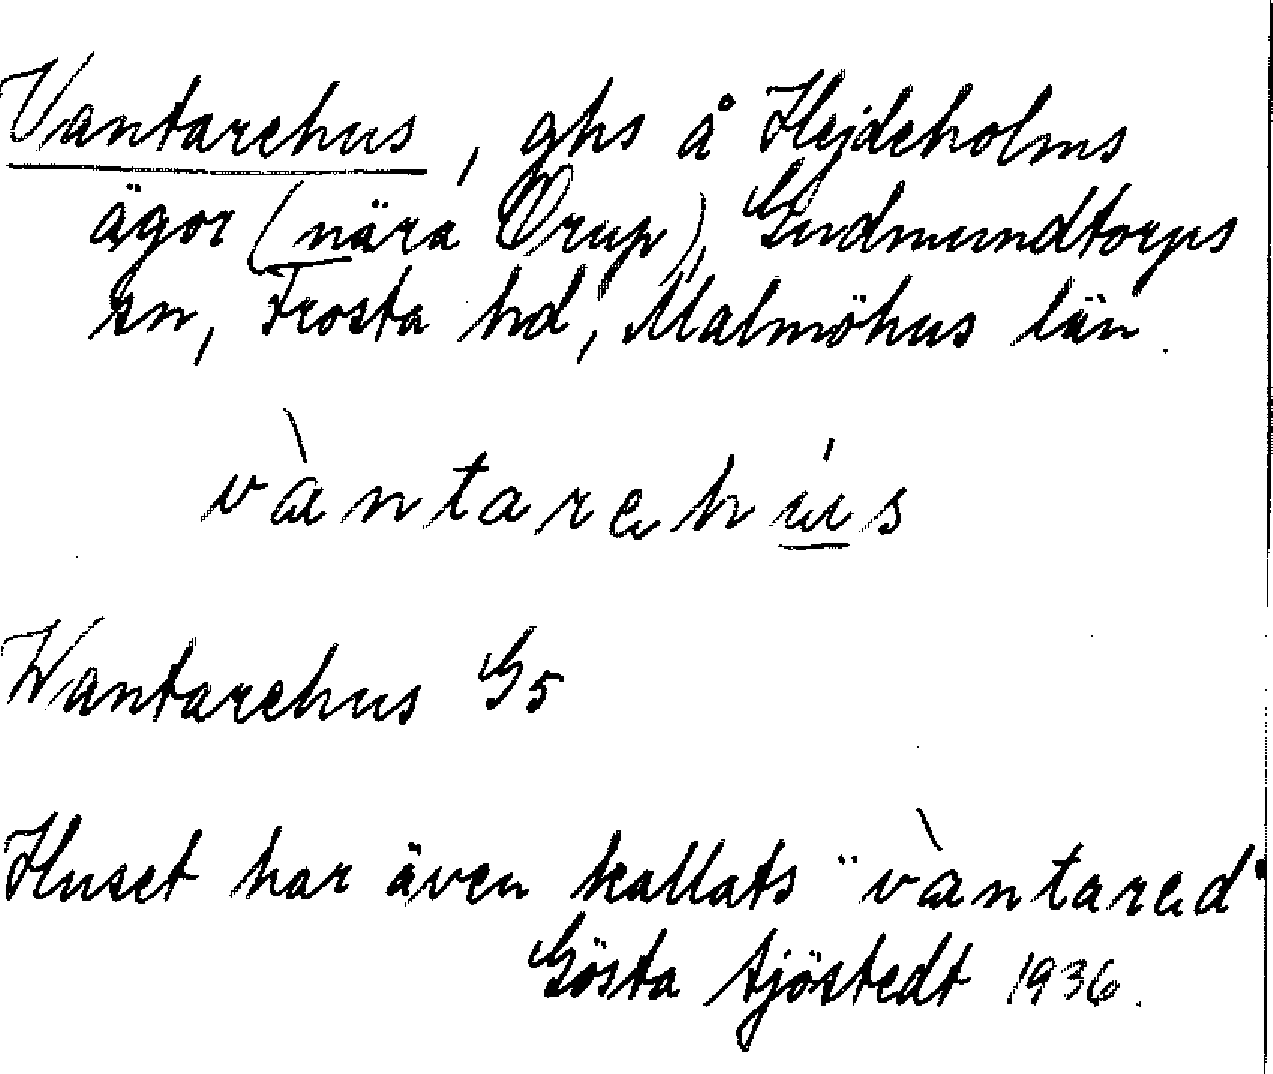 Vantarehus, ghs å Hejdeholms
ägor (nära Orup), Gudmundtorps
sn, Frosta hd, Malmöhus län.
vàntarehús
Wantarehus G5
Huset har även kallats "vàntared"
Gösta Sjöstedt 1936.